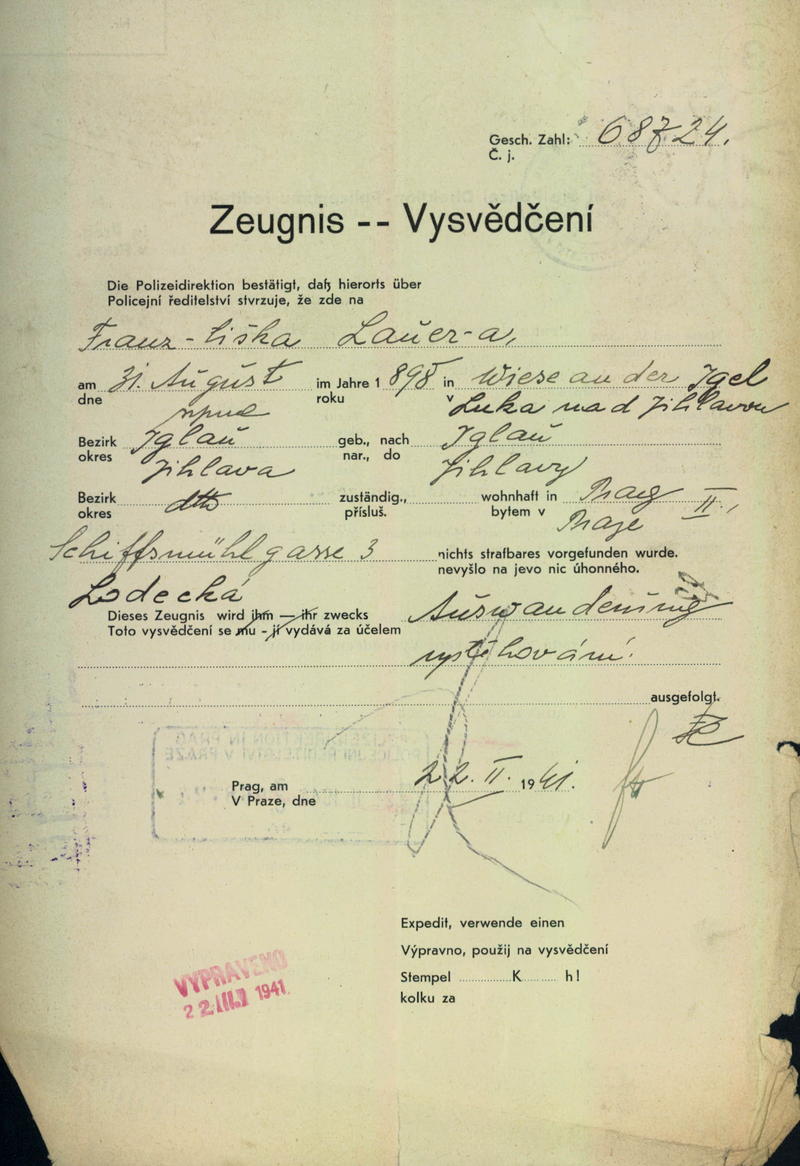 Gesch. Zahl: 68724.
Č. j.
Zeugnis -- Vysvědčení
Die Polizeidirektion bestätigt, daß hierorts über
Policejní ředitelství stvrzuje, že zde na
Franz - tiška Lauer-a,
am 31. August im Jahre 1 898 in Wiese an der Igel
dne srpna roku v Luka nad Jihlavou
Bezirk Iglau geb., nach Iglau
okres Jihlava nar., do Jihlavy
Bezirk dtto zuständig., wohnhaft in Prag II.,
okres přísluš. bytem v Praze
Schiffsmühlgasse 3 nichts strafbares vorgefunden wurde.
Lodecká nevyšlo na jevo nic úhonného.
Dieses Zeugnis wird ihm — ihr zwecks Auswanderung
Toto vysvědčení se mu - jí vydává za účelem
vystěhování.
ausgefolgt.
Prag, am 22. II. 1941.
V Praze, dne
Expedit, verwende einen
Výpravno, použij na vysvědčení
Stempel K h!
kolku za
VYPRAVENO
22. III. 1941